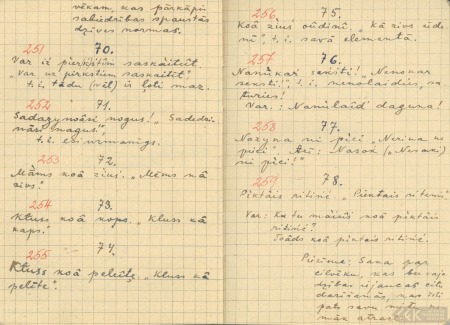 vēkam, kas pārkāpis
sabiedrības spraustās
dzīves normas.
251 70.
Var iz pierkstim saskaitīt.
"Var uz pirkstiem saskaitīt",
t. i. tādu (vēl) ir ļoti maz.
252 71.
Sadazynoāsi nogus! "Sadedzi-
nāsi nagus",
t. i. esi uzmanīgs.
253 72.
Māms koā zius. "Mēms kā
zivs."
254 73.
Kluss koā kops. "Kluss kā
kaps."
255 74.
Kluss koā peleite. "Kluss kā
pelīte".
256 75.
Koā zius ūdinī. "Kā zivs ūde-
nī", t. i. savā elementā.
257 76.
Nanūkar seksti! "Nenokar
seksti!", t. i. nenolaidies, sa-
turies!
Var.: Nanūlaid daguna!
258 77.
Nazyna ni pīci. "Nezina ne
pieci." Arī: Nasok ("Nesaki)
ni pīci!"
259 78.
Piktais ritinis. "Piektais ritenis"
Var: Ku tu māisīs koā piktais
ritinis?
Toāds koā piktais ritinis.
Piezīme: Saka par
cilvēku, kas bez vaja-
dzības iejaucas citu
darīšanās, kas
pats savu
māk atrast